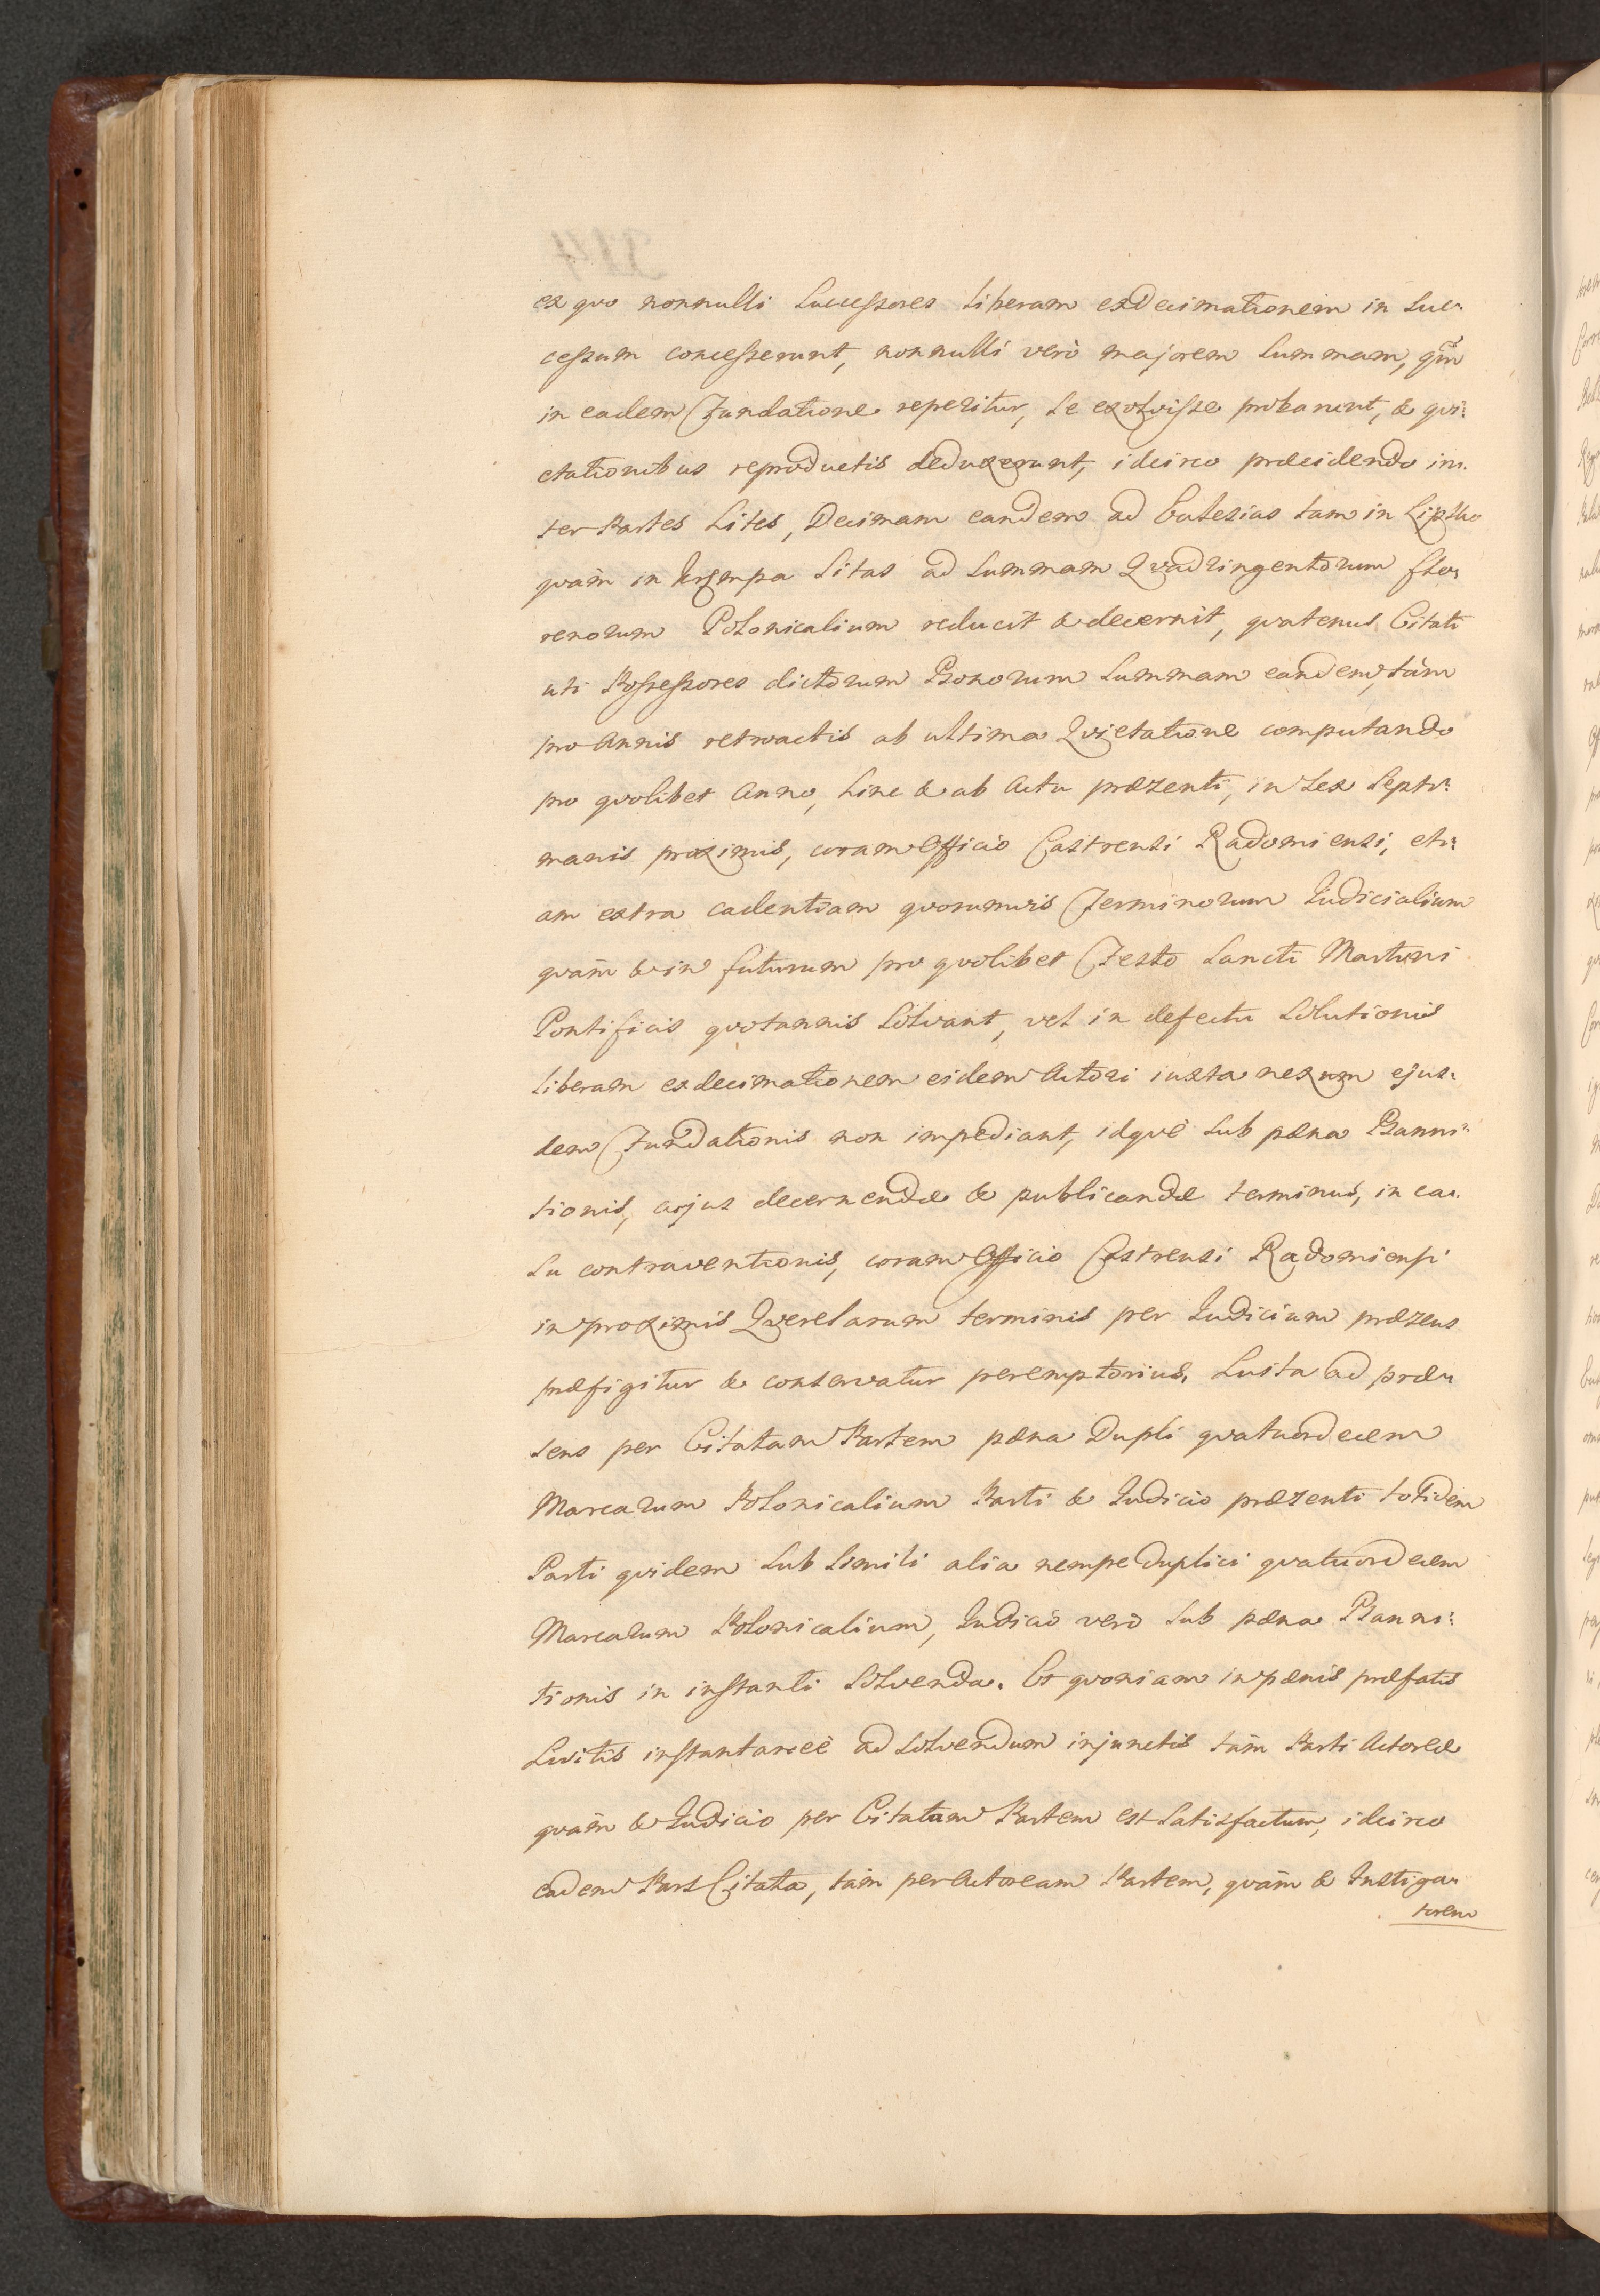 ex quo nonnulli Successores liberam exdecimationem in Suc-
cessum concesserunt, nonnulli verò majorem Summam, qm̃
in eadem Fundatione reperitur, se exolvisse probarunt, & qvi-
etationibus reproductis deduxerunt, idcirco præcidendo in-
ter Partes Lites, Decimam eandem ad Ecclesias tam in Lipsko
qvàm in Krempa Sitas ad Summam Qvadringentorum Flo-
renorum Polonicalium reducit & decernit, qvatenus Citati
uti Possessores dictorum Bonorum Summam eandem, tàm
pro Annis retroactis ab ultima Qvietatione computando
pro qvolibet Anno, hinc & ab Actu præsenti, in Sex Septi-
manis proximis, coram Officio Castrensi Radomiensi, eti-
am extra cadentiam qvorumvis Terminorum Judicialium
qvàm & in futurum pro qvolibet Festo Sancti Martini
Pontificis qvotannis Solvant, vel in defectu Solutionis
liberam exdecimationem eidem Actori iuxta nexum ejus-
dem Fundationis non impediant, idqvè Sub pæna Banni-
tionis, cujus decernendæ & publicandæ terminus, in ca-
su contraventionis, coram Officio Castrensi Radomiensi
in proximis Qverelarum terminis per Judicium præsens
præfigitur & conservatur peremptorius. Luita ad præ-
sens per Citatam Partem pæna Dupli qvatuordecem
Marcarum Polonicalium Parti & Judicio præsenti totidem
Parti qvidem Sub Simili alia nempe Duplici qvatuordecem
Marcarum Polonicalium, Judicio verò Sub pæna Banni-
tionis in instanti Solvenda. Et qvoniam in pænis præfatis
Luitis instantaneè ad Solvendum injunctis tàm Parti Actoreæ
qvàm & Judicio per Citatam Partem est Satisfactum, idcirco
eadem Pars Citata, tàm per Actoream Partem, qvàm & Instiga-
torem